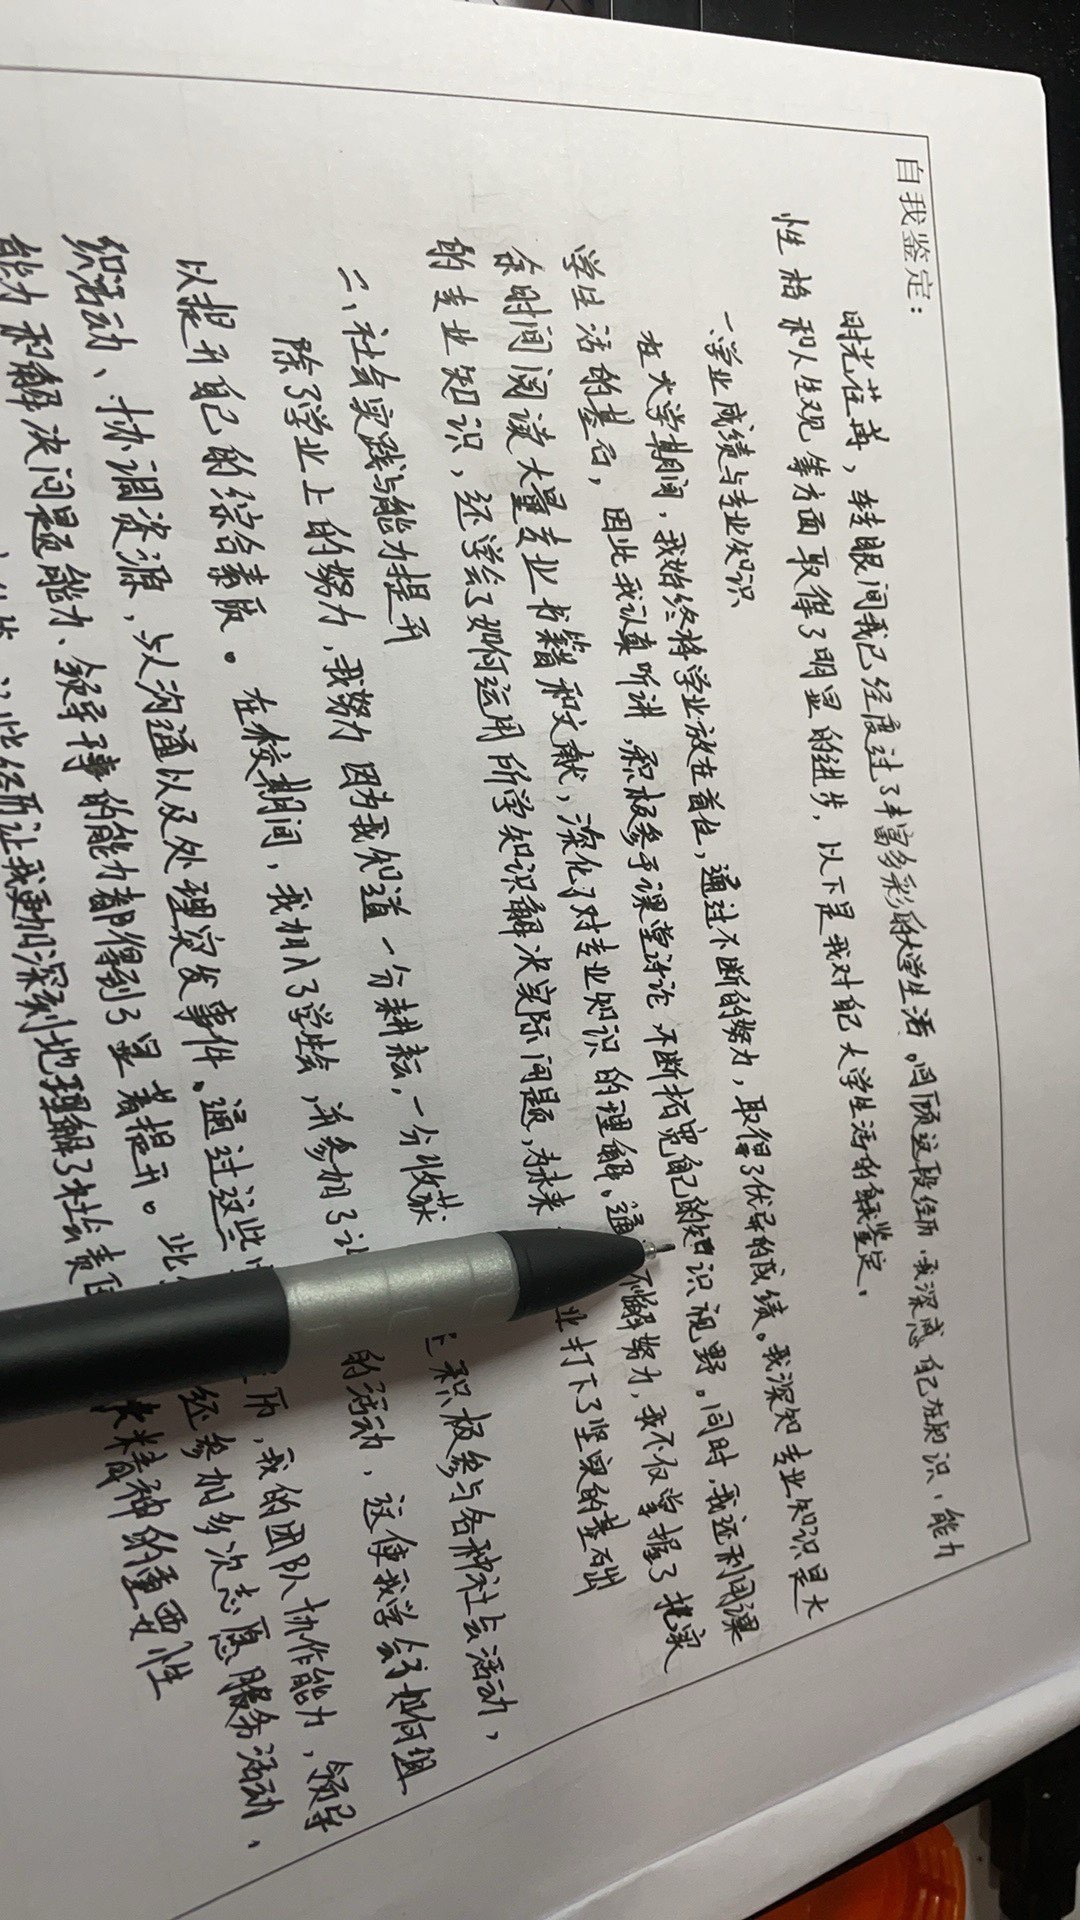 自我鉴定：
时光荏苒，转眼间我已经度过了丰富多彩的大学生活。回顾这段经历，我深感自己在知识、能力
性格和人生观等方面取得了明显的进步，以下是我对自己大学生活的自我鉴定。
一、学业成绩与专业知识
在大学期间，我始终将学业放在首位，通过不断的努力，取得了优异的成绩。我深知专业知识是大
学生活的基石，因此我认真听讲，积极参于课堂讨论，不断拓宽自己的知识视野。同时，我还利用课
余时间阅读大量专业书籍和文献，深化了对专业知识的理解。通 不懈努力，我不仅掌握了扎实
的专业知识，还学会了如何运用所学知识解决实际问题，为未来 业打下了坚实的基础
二、社会实践与能力提升
除了学业上的努力，我努力因为我知道一分耕耘，一分收获 上积极参与各种社会活动，
以提升自己的综合素质。在校期间，我加入了学生会，并参加了 的活动，这使我学会了如何组
织活动、协调资源，与人沟通以及处理突发事件。通过这些 历，我的团队协作能力，领导
能力和解决问题能力、领导 的能力都得到了显著提升。此 还参加多次志愿服务活动，
这些经历让我更加深刻地理解了社会责任 精神的重要性